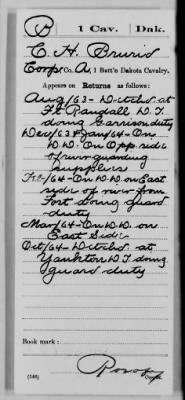 B | 1 Cav. | Dak.
C. H. Bruris
Corp., Co. A, 1 Batt'n Dakota Cavalry.
Appears on Returns as follows:
Aug/63 - Detchd. at
Ft. Randall D. T.
doing Garrison duty
Dec/63 & Jany/64 - On
D. D. On Opp. side
of river guarding
supplies
Feb/64 - On D. D. on East
side of river from
Fort doing guard
duty
Mar/64 - On D. D. on
East Side
Oct/64 - Detchd. at
Yankton D T doing
guard duty
Book mark:
(546)
Copyist.